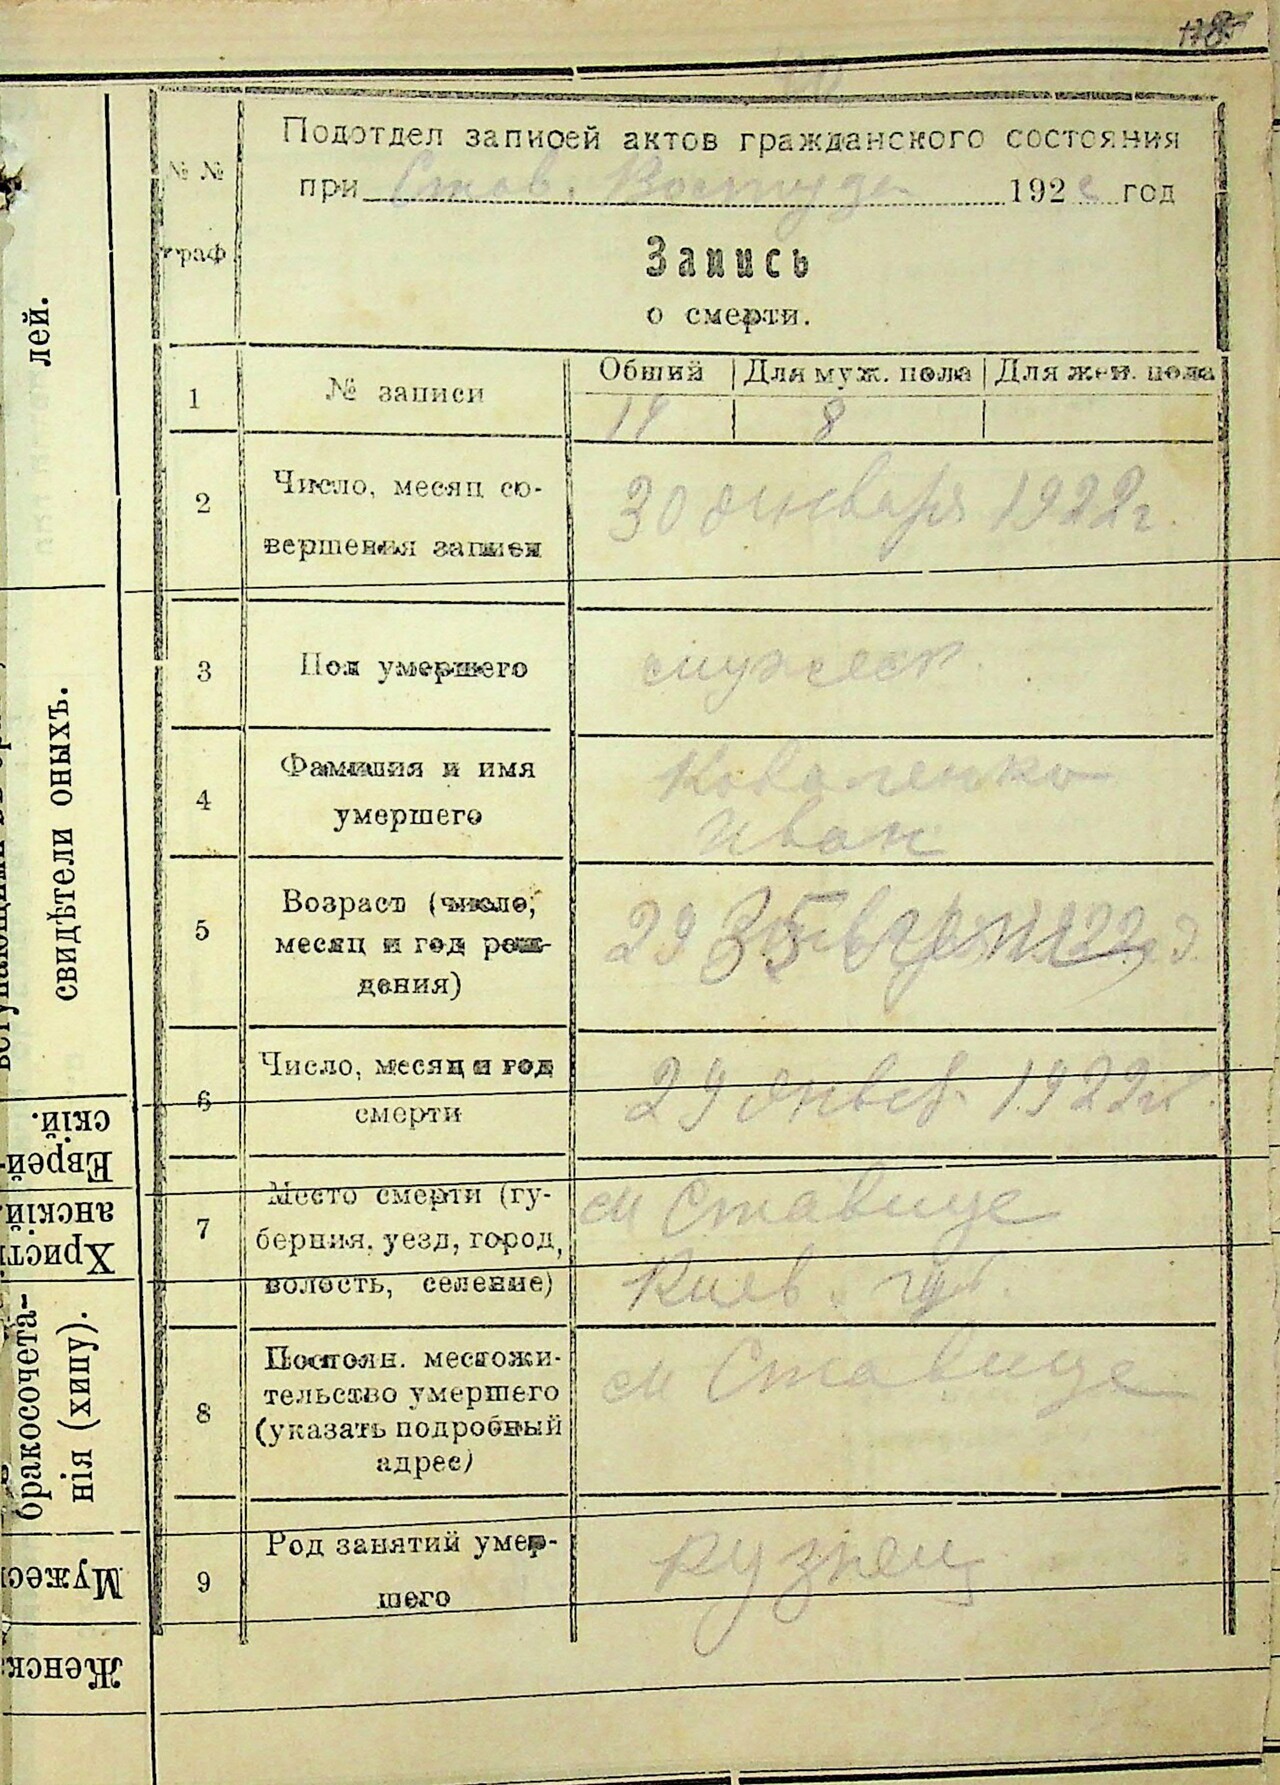 Подотдел записей актов гражданского состояния
при Став. 192 2 год
№ №
граф
Запись
о смерти.
1 № записи Общий Для муж. пола Для жен. пола
14 8
2 Число, месяц со-
вершения записи
30 января 1922 г.
3 Пол умершего мужеск.
4 Фамилия и имя
умершего
Коваленко
Иван
5 Возраст (число,
месяц и год рож-
дения)
29 35
6 Число, месяц и год
смерти
29 янв. 1922 г.
7 Место смерти (гу-
берния, уезд, город,
волость, селение)
м Ставище
Киев. губ.
8 Постоян. местожи-
тельство умершего
(указать подробный
адрес)
м Ставище
9 Род занятий умер-
шего
кузнец
лей.
свидѣтели оныхъ.
Еврей-
скій.
Христі-
анскій.
бракосочета-
нія (хипу).
Мужес
Женск